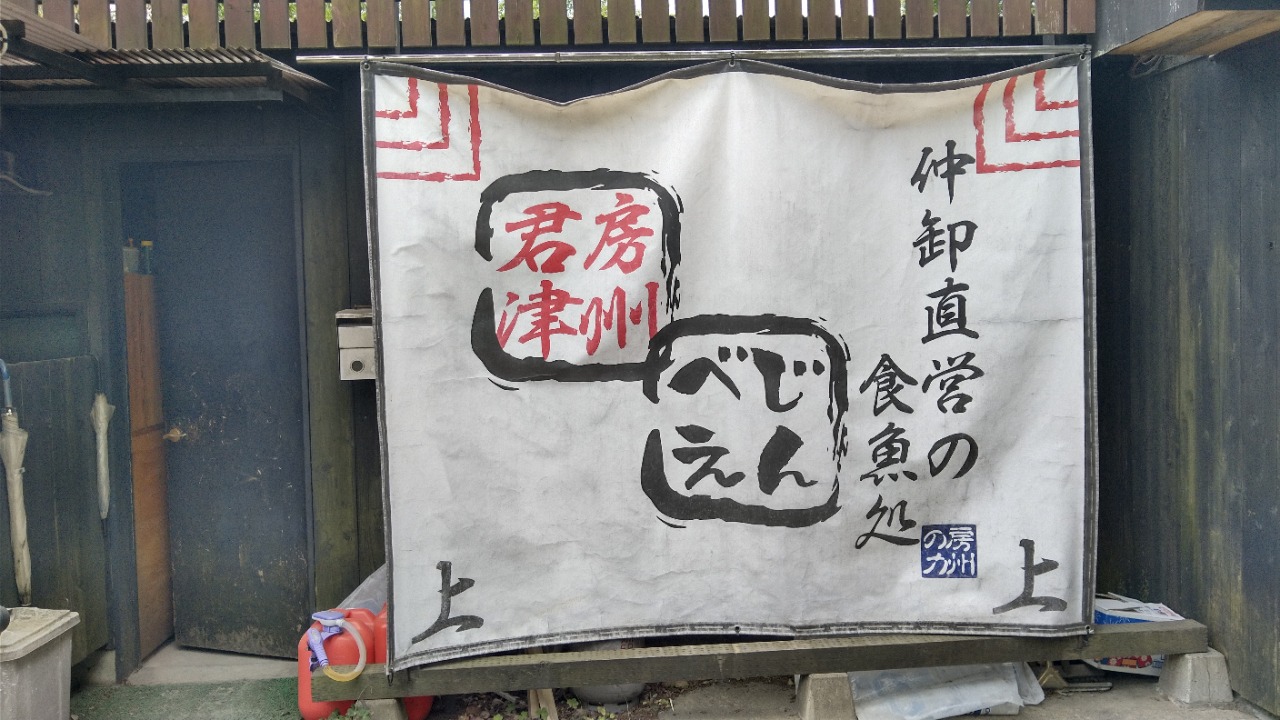 仲卸直営の
食魚処
房州
君津
べじ
えん
房州
の力
上
上